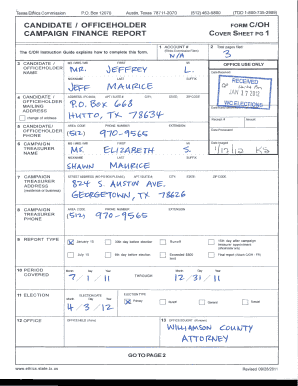 Texas Ethics Commission P.O. Box 12070 Austin, Texas 78711-2070 (512) 463-5800 (TDD 1-800-735-2989)
CANDIDATE / OFFICEHOLDER CAMPAIGN FINANCE REPORT
FORM C/OH
COVER SHEET PG 1
The C/OH Instruction Guide explains how to complete this form.
1 ACCOUNT #
N/A
2 Total pages filed:
3
3 CANDIDATE / OFFICEHOLDER NAME
MS / MRS / MR FIRST MI
MR. JEFFREY L.
NICKNAME LAST SUFFIX
JEFF MAURICE
OFFICE USE ONLY
Date Received
RECEIVED
JAN 17 2012
WC ELECTIONS
4 CANDIDATE / OFFICEHOLDER MAILING ADDRESS
change of address
P.O. BOX 668
HUTTO, TX 78634
5 CANDIDATE / OFFICEHOLDER PHONE
AREA CODE PHONE NUMBER EXTENSION
(512) 970-9565
Receipt # Amount
Date Processed
6 CAMPAIGN TREASURER NAME
MS / MRS / MR FIRST MI
MS. ELIZABETH S.
NICKNAME LAST SUFFIX
SHAWN MAURICE
Date Imaged
1/17/12 KS
7 CAMPAIGN TREASURER ADDRESS
(residence or business)
824 S. AUSTIN AVE.
GEORGETOWN, TX 78626
8 CAMPAIGN TREASURER PHONE
AREA CODE PHONE NUMBER EXTENSION
(512) 970-9565
9 REPORT TYPE
January 15 30th day before election Runoff 15th day after campaign treasurer appointment (officeholder only)
July 15 8th day before election Exceeded $500 limit Final report (Attach C/OH - FR)
10 PERIOD COVERED
Month Day Year THROUGH Month Day Year
7/1/11 12/31/11
11 ELECTION
ELECTION DATE
Month Day Year
4/3/12
ELECTION TYPE
Primary Runoff General Special
12 OFFICE
OFFICE HELD (if any)
13 OFFICE SOUGHT (if known)
WILLIAMSON COUNTY
ATTORNEY
GO TO PAGE 2
www.ethics.state.tx.us Revised 09/28/2011